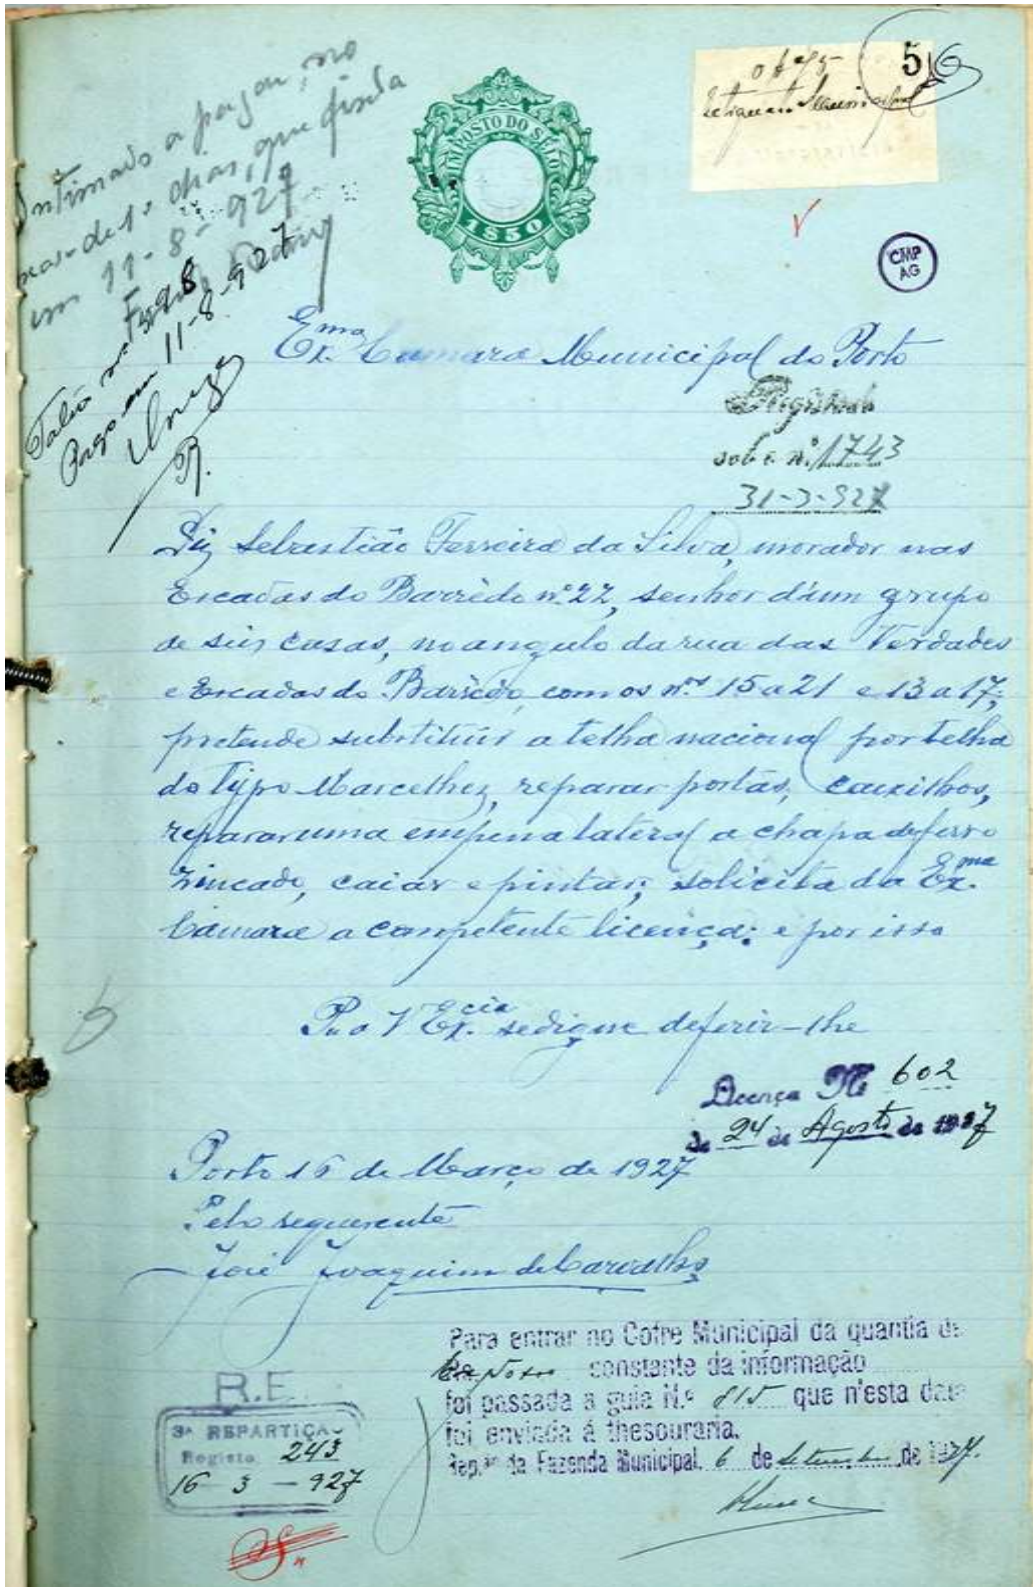 Intimado a pagar, no
praso de 10 dias, que finda
em 11-8-927
Talão nº 598
Pago em 11-8-927
R.
IMPOSTO DO SELO
1850
5
CMP
AG
Exma Camara Municipal do Porto
Registada
sob o nº 1743
31-3-927
Diz Sebastião Ferreira da Silva, morador nas
Escadas do Barrêdo nº 22, senhor d'um grupo
de seis casas, no angulo da rua das Verdades
e Escadas do Barrêdo, com os nos 15 a 21 e 13 a 17;
pretende substituir a telha nacional por telha
do typo Marcelhez, reparar portas, caixilhos,
reparar uma empena lateral a chapa de ferro
zincado, caiar e pintar; solicita da Exma
Câmara a competente licença: e por isso
P. a V. Excia se digne deferir-lhe
Licença Nº 602
de 24 de Agosto de 1927
Porto 16 de Março de 1927
Pelo requerente
José Joaquim de Carvalho
Para entrar no Cofre Municipal da quantia de
constante da informação
foi passada a guia N.º 815 que n'esta data
foi enviada á thesouraria.
Rep.ão da Fazenda Municipal, 6 de Setembro de 1927.
R.E.
3ª REPARTIÇÃO
Registo 243
16-3-927